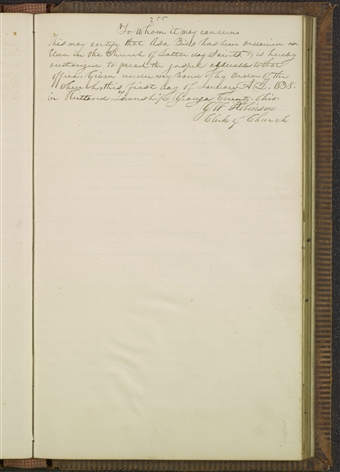 255
To Whom it may concern
this may certify that Asa Bill has been ordained
in the Church of Latter day Saints & is hereby
authorized to preach the gospel to that
office. Given under my hand & by order of the
Church, this first day of January A.D. 1835.
in Kirtland Township, Geauga County, Ohio.
G W Robinson
Clerk of Church